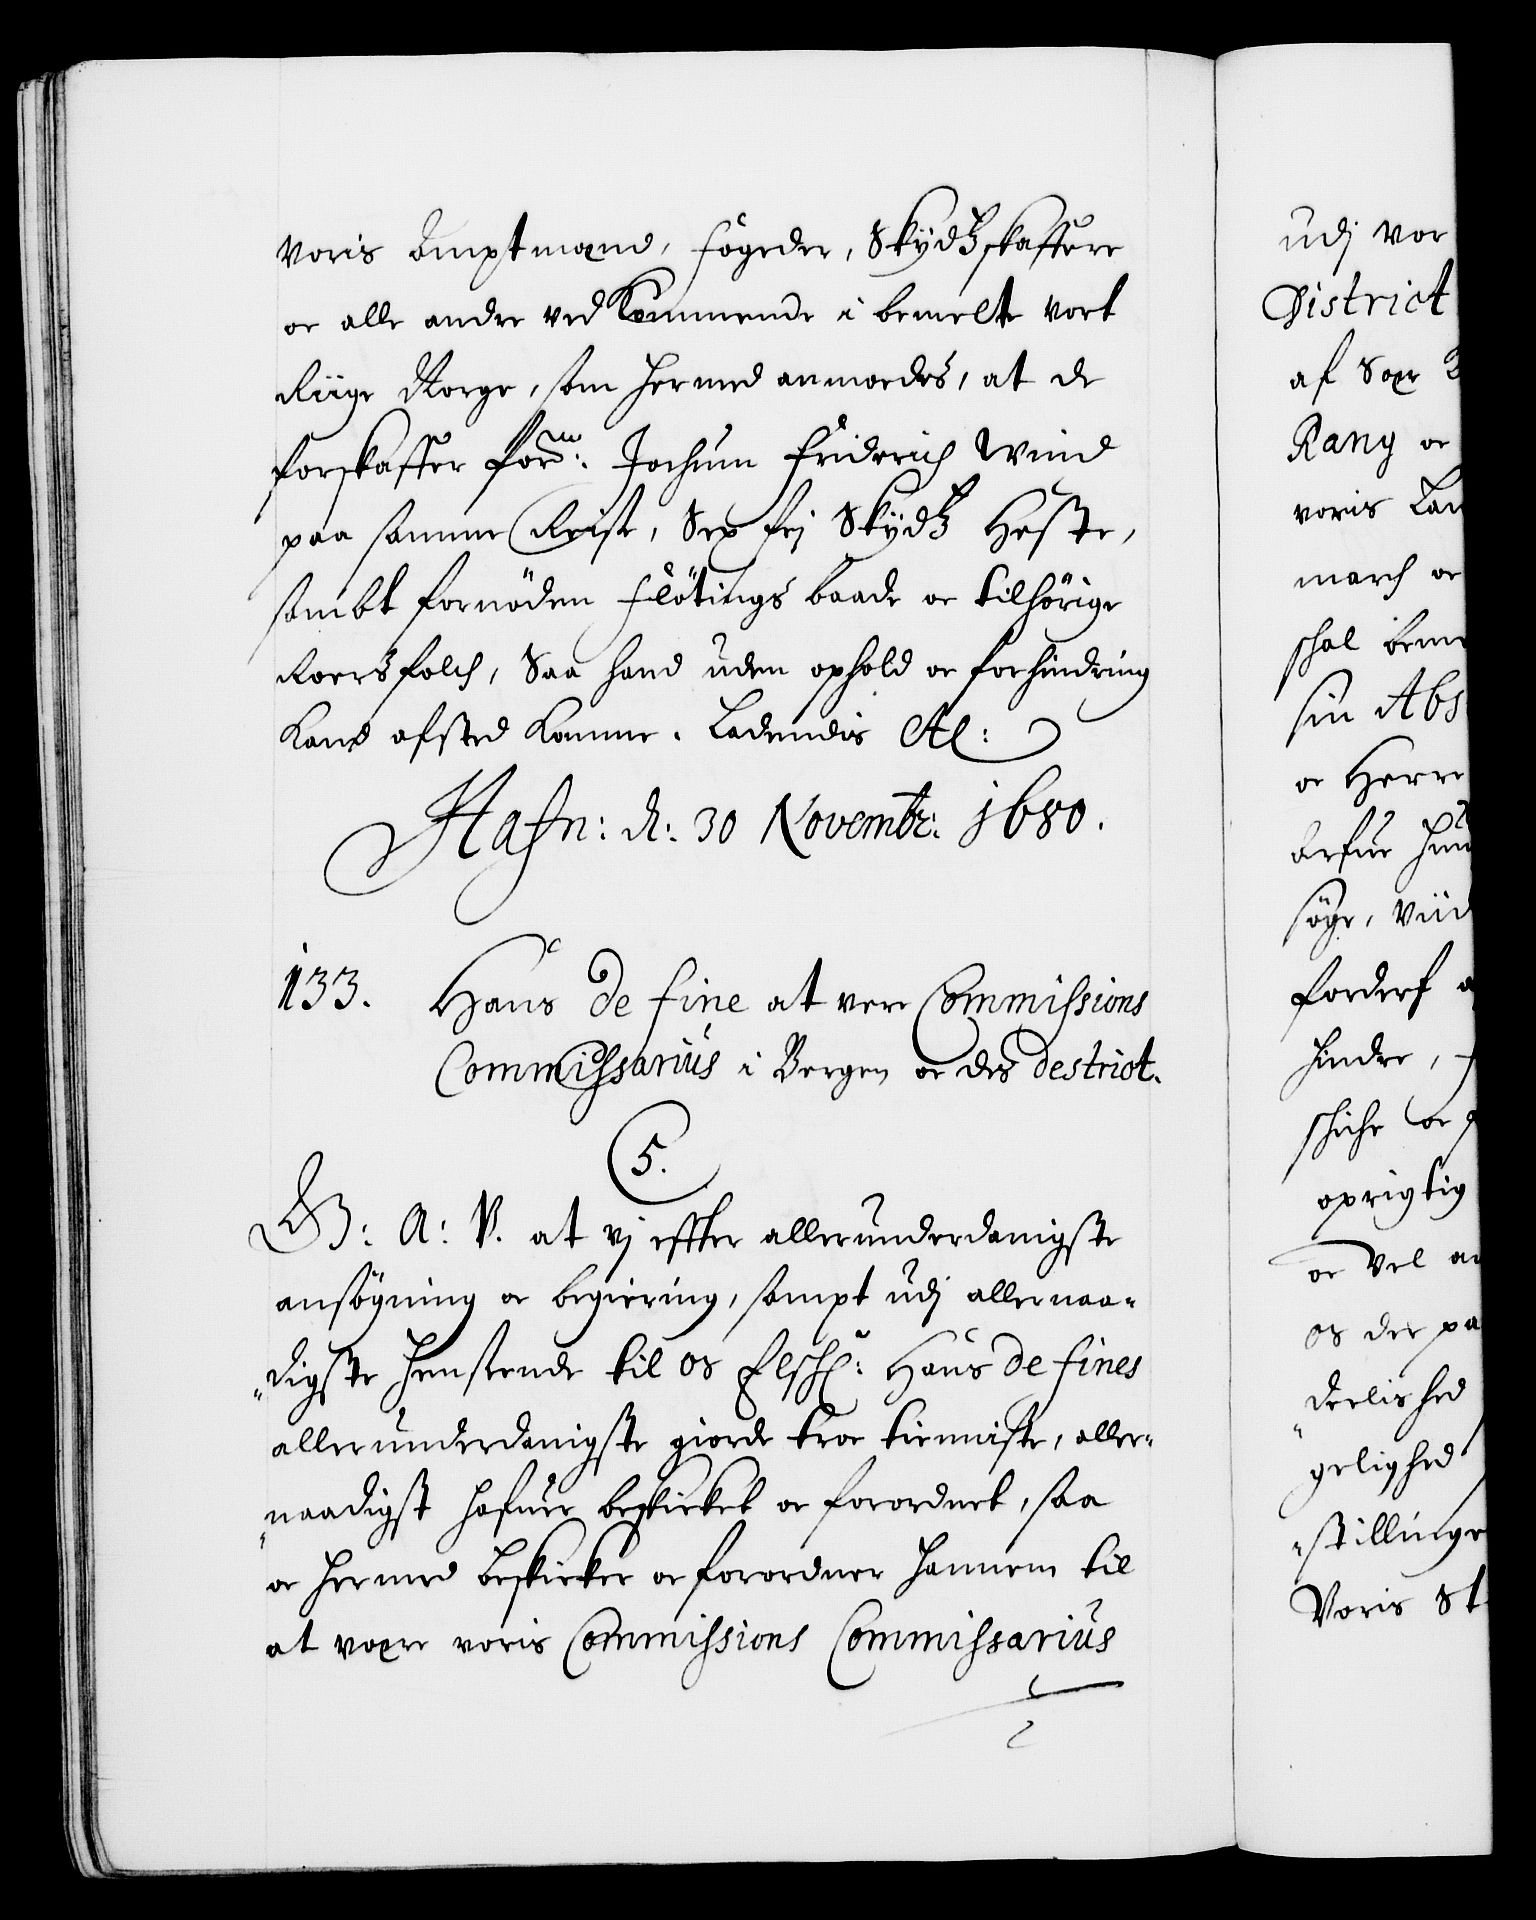 Voris Amptmænd, fogeder, Skydtzskaffere
oc alle andre ved Kommende i bemelte vort
Riige Norge, som hermed anmodes, at de
forskaffer forn: Jochum Friderich Wind
paa samme Reise, Sex frj Skydtz Heste,
sambt fornöden flötings baade oc tilhörige
Roersfolch, Saa hand uden ophold oc forhindring
Kand afsted Komme. Ladendis etc:
Hafn: d: 30 Novembr: 1680.
133. Hans de fine at vere Commissions
Commissarius i Bergen oc des destrict.
C5.
G: A: V. at vj effter allerunderdanigste
ansögning oc begiering, sampt udj allernaa-
digste henseende til os Elsch: Hans de fines
allerunderdanigste giorde troe tienniste, aller-
naadigst hafuer beskicket oc forordnet, saa
oc hermed beskicker oc forordner hannem til
at være voris Commissions Commissarius
udj vor
District
af Sær
Rang oc
voris Lan
march oc
schal bem
sin Abs
oc Herre
Arfue
söge, Viid
forderf
hindre,
schicke oc
oprigtig
oc Vel an
os der pa
deelished
gelighed
stillinge
Voris St